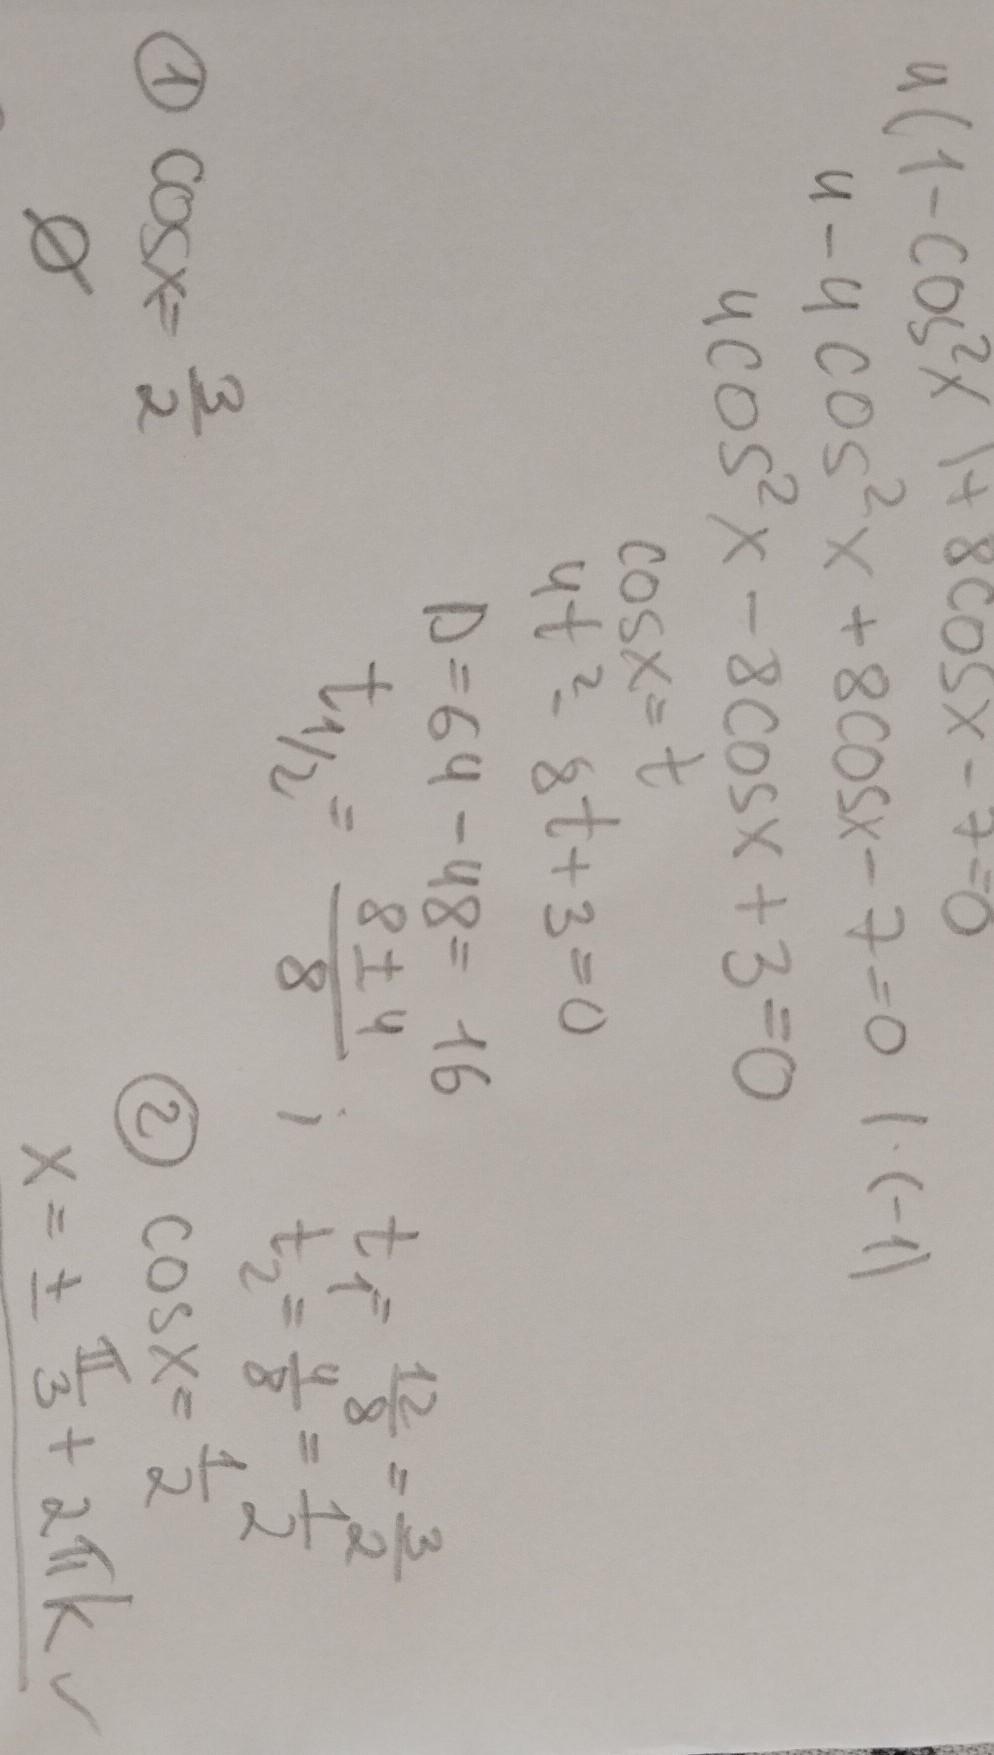 4(1-cos²x)+8cosx-7=0
4-4cos²x+8cosx-7=0 |·(-1)
4cos²x-8cosx+3=0
cosx=t
4t²-8t+3=0
D=64-48=16
t1/2=(8±4)/8 ; t1=12/8=3/2
t2=4/8=1/2
① cosx=3/2
∅
② cosx=1/2
x=±π/3+2πk ✓